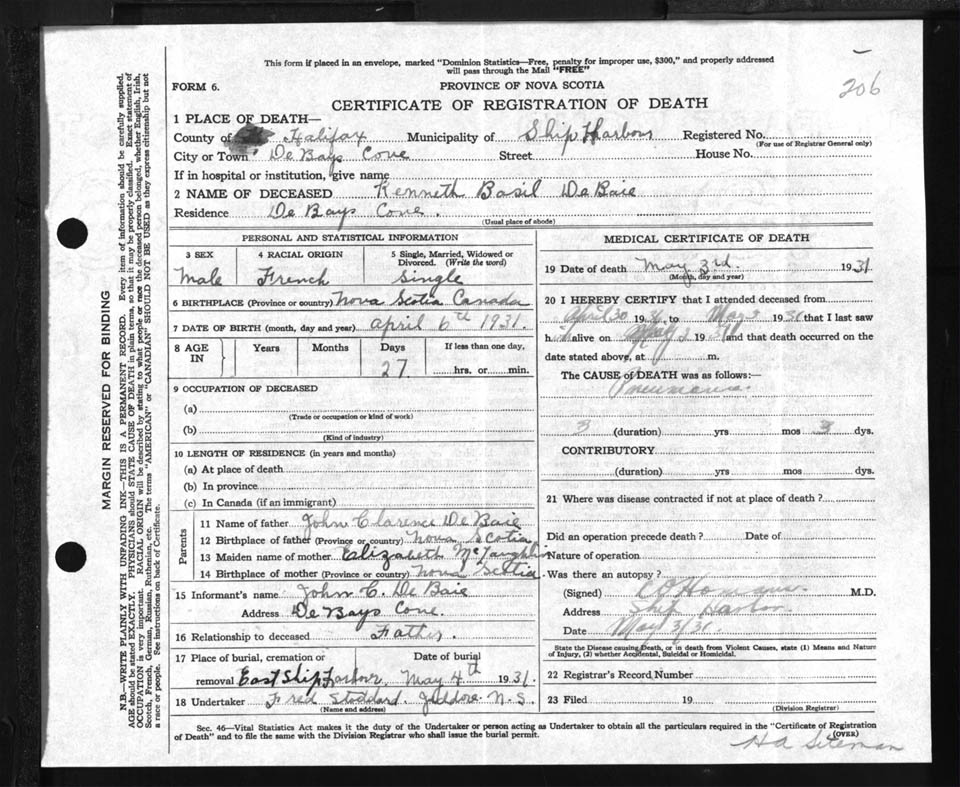 This form if placed in an envelope, marked "Dominion Statistics—Free, penalty for improper use, $300," and properly addressed
will pass through the Mail "FREE"
206
FORM 6.
PROVINCE OF NOVA SCOTIA
CERTIFICATE OF REGISTRATION OF DEATH
1 PLACE OF DEATH—
County of Halifax Municipality of Ship Harbour Registered No.
(For use of Registrar General only)
City or Town De Bays Cove Street House No.
If in hospital or institution, give name
2 NAME OF DECEASED Kenneth Basil De Baie
Residence De Bays Cove.
(Usual place of abode)
PERSONAL AND STATISTICAL INFORMATION
3 SEX 4 RACIAL ORIGIN 5 Single, Married, Widowed or
Divorced. (Write the word)
Male French Single
6 BIRTHPLACE (Province or country) Nova Scotia Canada
7 DATE OF BIRTH (month, day and year) April 6th 1931.
8 AGE IN Years Months Days If less than one day,
27 hrs. or min.
9 OCCUPATION OF DECEASED
(a)
(Trade or occupation or kind of work)
(b)
(Kind of industry)
10 LENGTH OF RESIDENCE (in years and months)
(a) At place of death
(b) In province
(c) In Canada (if an immigrant)
Parents
11 Name of father John Clarence De Baie
12 Birthplace of father (Province or country) Nova Scotia
13 Maiden name of mother Elizabeth McLaughlin
14 Birthplace of mother (Province or country) Nova Scotia
15 Informant's name John C. De Baie
Address De Bays Cove.
16 Relationship to deceased Father.
17 Place of burial, cremation or Date of burial
removal East Ship Harbour May 4th 1931.
18 Undertaker Fred Stoddard. Jeddore N.S.
(Name and address)
MEDICAL CERTIFICATE OF DEATH
19 Date of death May 3rd. 1931
(Month, day and year)
20 I HEREBY CERTIFY that I attended deceased from
April 30 193 to May 3 1931 that I last saw
h alive on May 2 1931 and that death occurred on the
date stated above, at m.
The CAUSE of DEATH was as follows:—
Pneumonia
3 (duration) yrs mos 3 dys.
CONTRIBUTORY
(duration) yrs mos dys.
21 Where was disease contracted if not at place of death?
Did an operation precede death? Date of
Nature of operation
Was there an autopsy?
(Signed) M.D.
Address Ship Harbor
Date May 3/31.
State the Disease causing Death, or in death from Violent Causes, state (1) Means and Nature
of Injury, (2) whether Accidental, Suicidal or Homicidal.
22 Registrar's Record Number
23 Filed 19
(Division Registrar)
Sec. 46—Vital Statistics Act makes it the duty of the Undertaker or person acting as Undertaker to obtain all the particulars required in the "Certificate of Registration
of Death" and to file the same with the Division Registrar who shall issue the burial permit.
(OVER)
H A Siteman
MARGIN RESERVED FOR BINDING
N.B.—WRITE PLAINLY WITH UNFADING INK—THIS IS A PERMANENT RECORD. Every item of information should be carefully supplied.
AGE should be stated EXACTLY. PHYSICIANS should STATE CAUSE OF DEATH in plain terms, so that it may be properly classified. Exact statement of
OCCUPATION is very important. RACIAL ORIGIN will be described by stating to what people or race the deceased person belonged, whether English, Irish,
Scotch, French, German, Russian, Ruthenian, etc. The terms "AMERICAN" or "CANADIAN" SHOULD NOT BE USED as they express citizenship but not
a race or people. See instructions on back of Certificate.